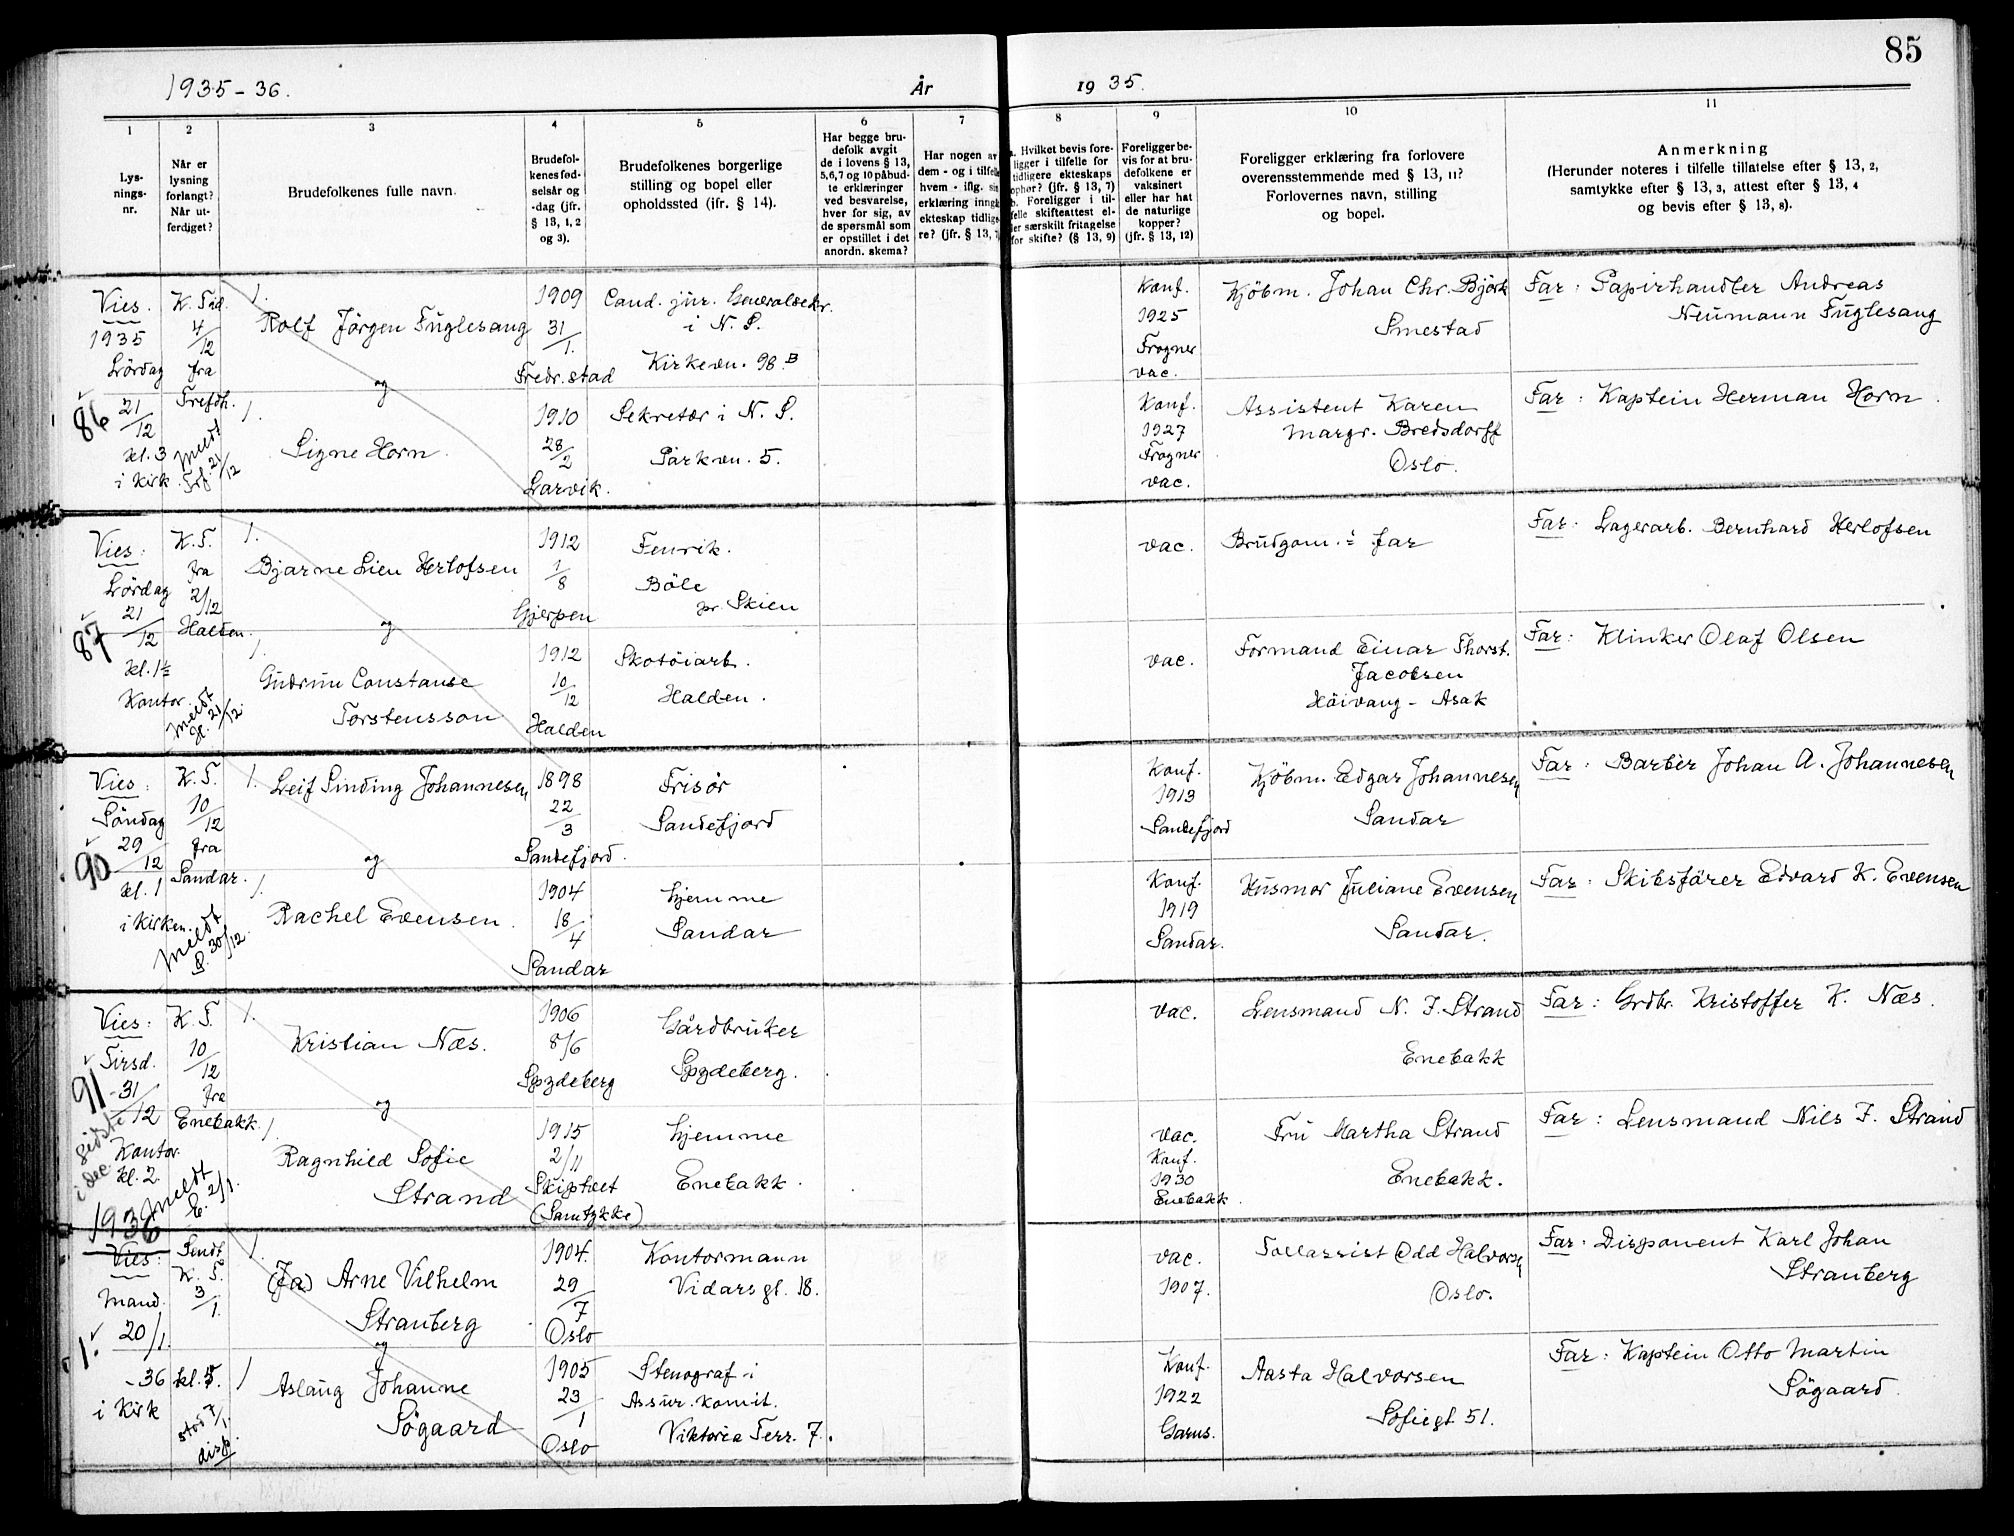 85
1935-36.
År
19 35.
1
2
3
4
5
6
7
8
9
10
11
Lys-
nings-
nr.
Når er
lysning
forlangt?
Når ut-
ferdiget?
Brudefolkenes fulle navn.
Brudefol-
kenes fød-
selsår og
-dag (jfr.
§ 13, 1, 2
og 3).
Brudefolkenes borgerlige
stilling og bopel eller
opholdssted (jfr. § 14).
Har begge bru-
defolk avgit
de i lovens § 13,
5,6,7 og 10 påbud-
te erklæringer
ved besvarelse,
hver for sig, av
de spørsmål som
er opstillet i det
anordn. skema?
Har nogen av
dem - og i tilfelle
hvem - iflg. sin
erklæring inngå
ekteskap tidlig-
re? (jfr. § 13, 7
a. Hvilket bevis fore-
ligger i tilfelle for
tidligere ekteskaps
ophør? (jfr. § 13, 7)
b. Foreligger i til-
felle skifteattest el-
ler særskilt fritagelse
for skifte? (§ 13, 9)
Foreligger be-
vis for at bru-
defolkene er
vaksinert
eller har hat
de naturlige
kopper?
(jfr. § 13, 12)
Foreligger erklæring fra forlovere
overensstemmende med § 13, 11?
Forlovernes navn, stilling
og bopel.
Anmerkning
(Herunder noteres i tilfelle tillatelse efter § 13, 2,
samtykke efter § 13, 3, attest efter § 13, 4
og bevis efter § 13, 8).
86
Vies.
1935
Lördag
21/12
kl. 3
i Kirk
K. Fred.
4/12
fra
Trefdh.
Meldt
Trf. 21/12
1.
Rolf Jörgen Fuglesang
og
1.
Signe Horn.
1909
31/1.
Fredr.stad
1910
28/2
Larvik.
Cand. jur. Generalsekr.
i N. S.
Kirkevn. 98.B
Sekretær i N. S.
Parkvn. 5.
Konf.
1925
Frogner
vac.
Konf.
1927
Frogner
vac.
Kjöbm. Johan Chr. Björk
Smestad
Assistent Karen
Margr. Bredsdorff
Oslo.
Far: Papirhandler Andreas
Neumann Fuglesang
Far: Kaptein Herman Horn.
87
Vies:
Lördag
21/12
kl. 1½
Kontor
K. T.
fra
2/12
Halden.
Meldt
H. 21/12.
1.
Bjarne Lien Herlofsen
og
1.
Gudrun Constanse
Torstensson
1912
1/8
Gjerpen
1912
10/12
Halden
Fenrik.
Böle
pr. Skien
Skotöiarb.
Halden.
vac.
vac.
Brudgom.s far
Formand Einar Thorst.
Jacobsen
Höivang - Asak
Far: Lagerarb. Bernhard Herlofsen
Far: Klinker Olaf Olsen
90
Vies:
Söndag
29/12
kl. 1
i Kirken.
K. T.
10/12
fra
Sandar.
Meldt
S. 30/12
1.
Leif Sinding Johannesen
og
1.
Rachel Evensen.
1898
22/3
Sandefjord.
1904
18/4
Sandar
Frisör
Sandefjord
hjemme
Sandar
Konf.
1913
Sandefjord
Konf.
1919
Sandar.
Kjöbm. Edgar Johannesen
Sandar
Husmor Juliane Evensen
Sandar.
Far: Barbér Johan A. Johannesen
Far: Skibsförer Edvard K. Evensen
91
sidste
i dec.
Vies:
Tirsd.
-31/12
Kontor.
kl. 2.
K. T.
10/12
fra
Enebakk.
Meldt
E. 2/1.
1.
Kristian Næs.
og
1.
Ragnhild Sofie
Strand
1906
8/6
Spydeberg
1915
2/11
Skiptvet
(Samtykke)
Gårdbruker
Spydeberg.
hjemme
Enebakk.
vac.
vac.
Konf.
1930
Enebakk.
Lensmand N. F. Strand
Enebakk
Fru Martha Strand
Enebakk.
Far: Grdbr. Kristoffer K. Næs.
Far: Lensmand Nils F. Strand
1936
1.
Vies:
Mand.
20/1.
-36
i Kirk
Sendt
K. T.
3/1.
kl. 5.
1.
(Ja) Arne Vilhelm
Stranberg
og
1
Aslaug Johanne
Sögaard
1904.
29/7
Oslo
1905
23/1
Oslo
Kontormann
Vidarsgt. 18.
Stenograf i
Assur. komit.
Viktoria Terr. 7.
vac.
1907.
Konf.
1922
Garns.
Tollassist Odd Halvorsen
Oslo.
Aasta Halvorsen
Sofiegt 51.
Far: Disponent Karl Johan
Stranberg
Far: Kaptein Otto Martin
Sögaard.